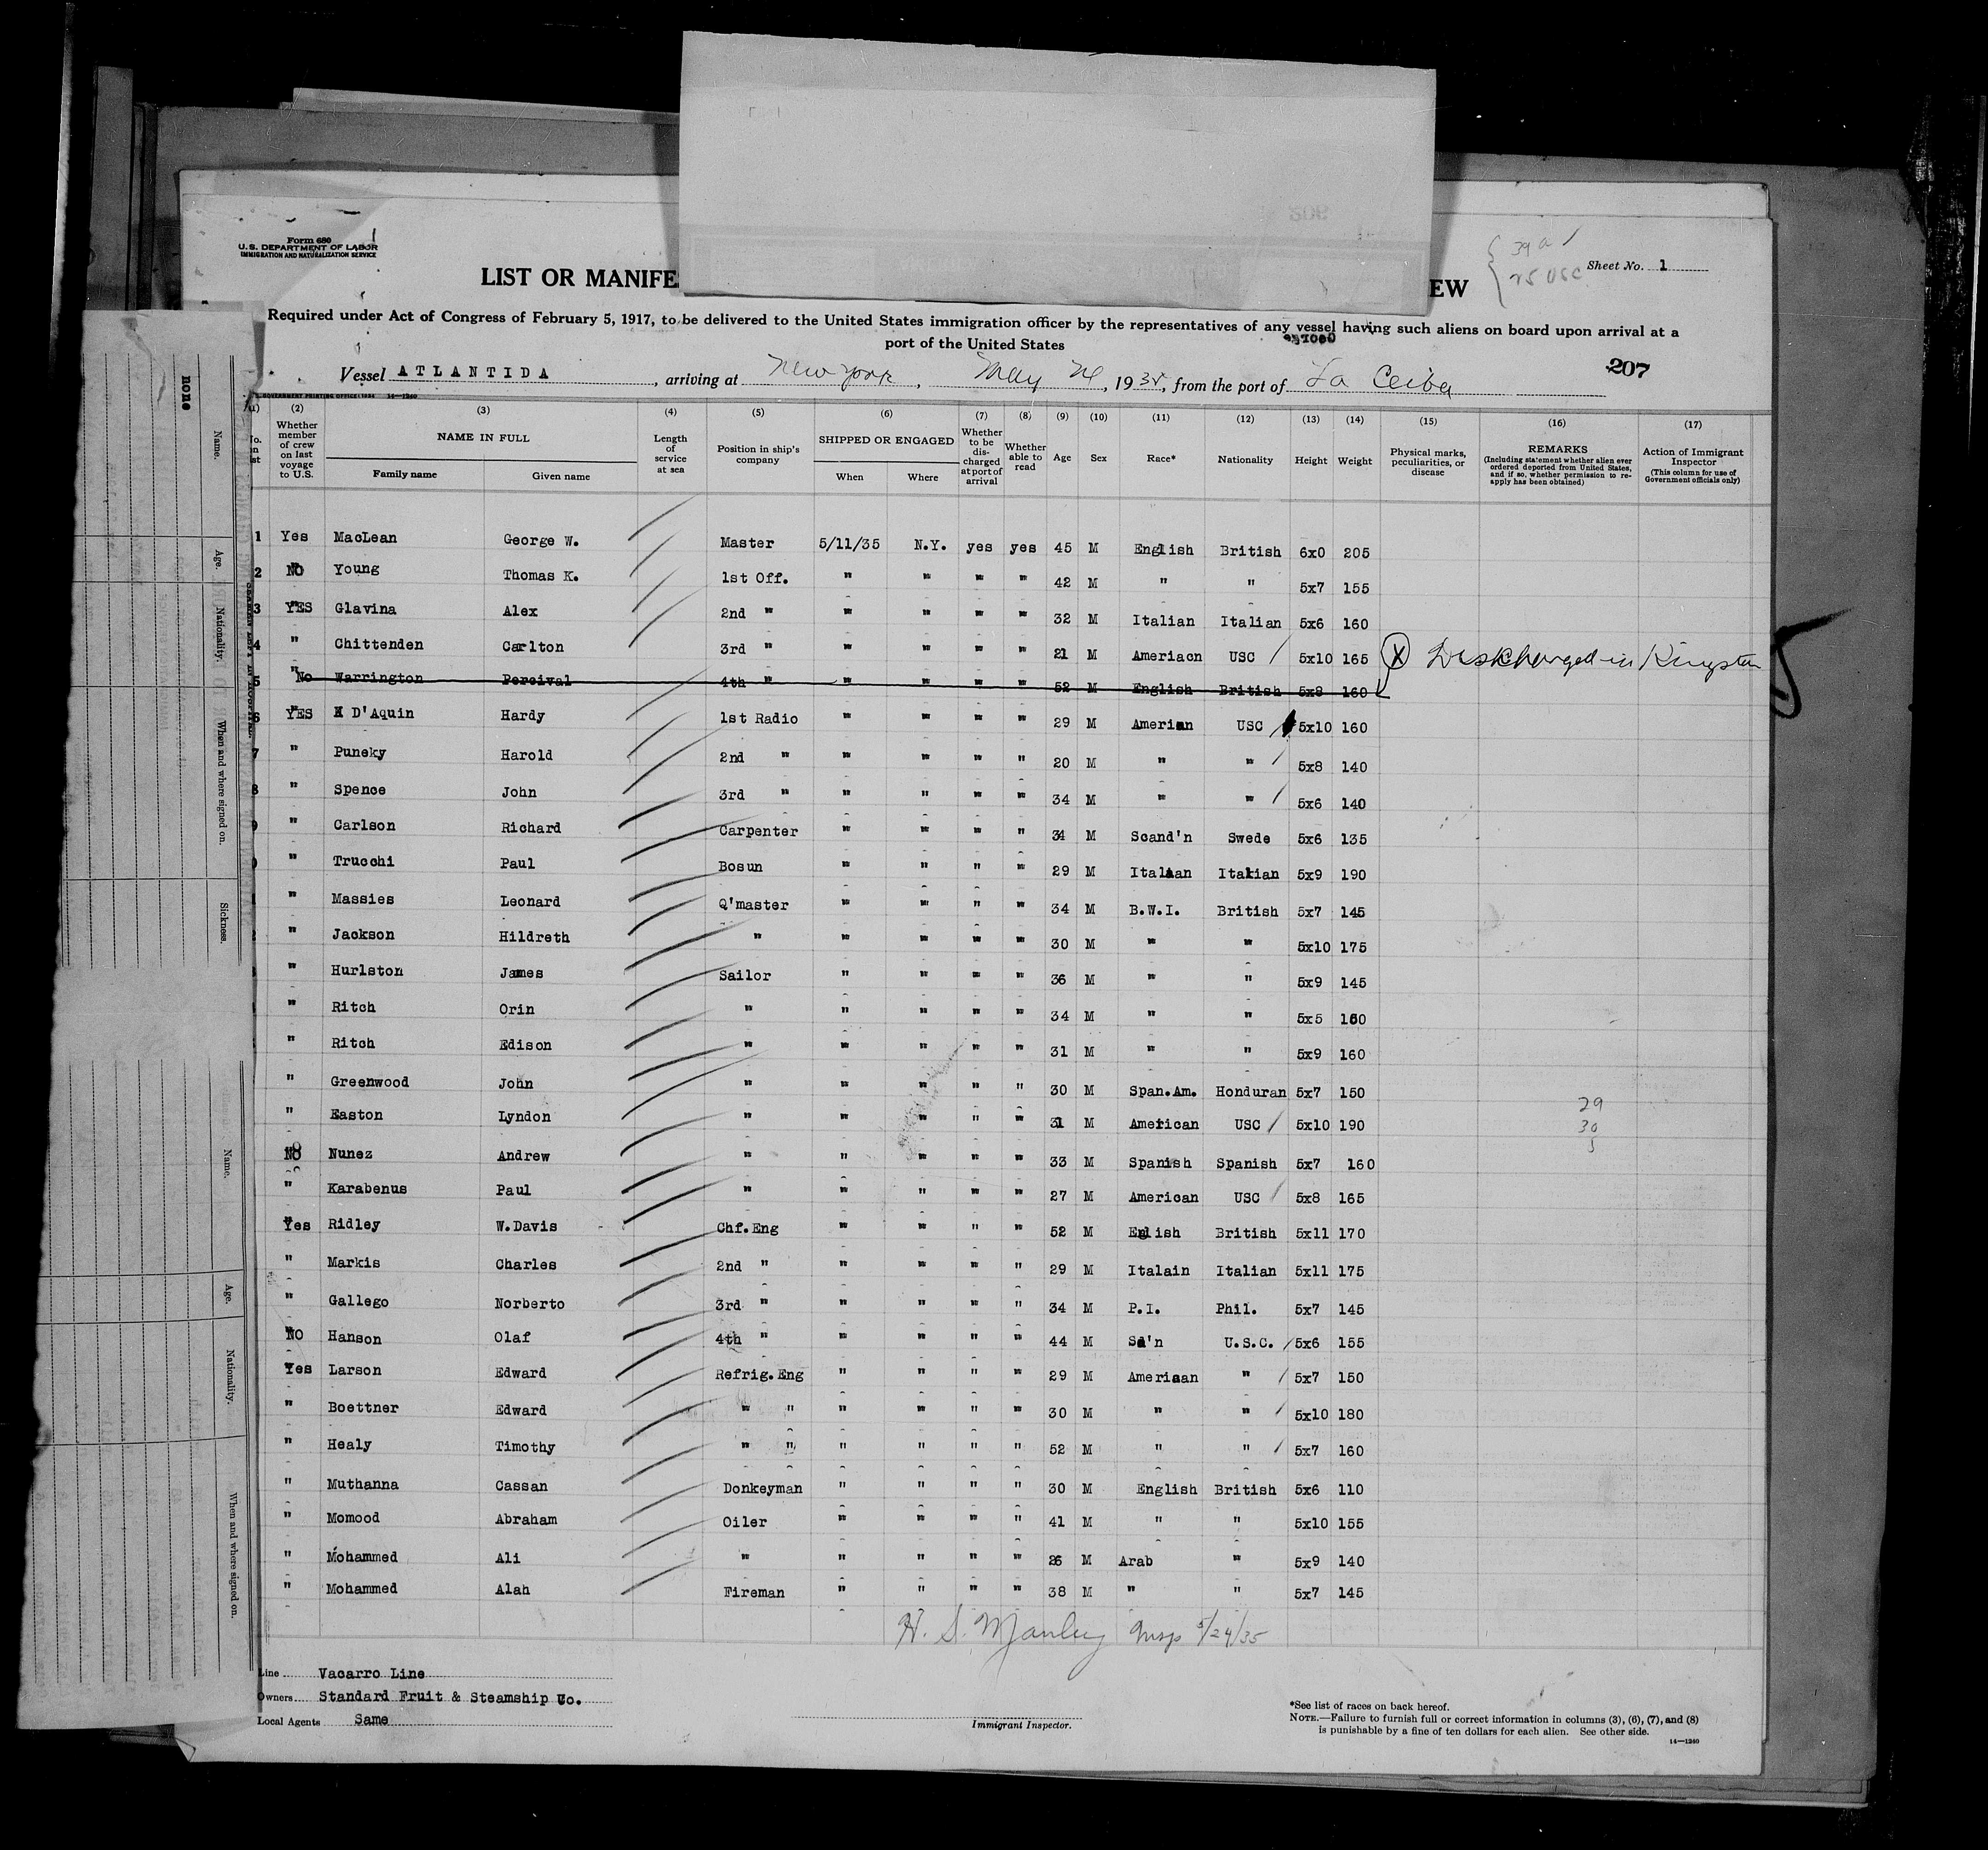 Form 680
U.S. DEPARTMENT OF LABOR
IMMIGRATION AND NATURALIZATION SERVICE
39 a /
25 USC
Sheet No. 1
LIST OR MANIFE
EW
Required under Act of Congress of February 5, 1917, to be delivered to the United States immigration officer by the representatives of any vessel having such aliens on board upon arrival at a
port of the United States
207
Vessel ATLANTIDA, arriving at New York, May 24, 1935, from the port of La Ceiba
GOVERNMENT PRINTING OFFICE: 1934 14—1240
(2) (3) (4) (5) (6) (7) (8) (9) (10) (11) (12) (13) (14) (15) (16) (17)
Whether member of crew on last voyage to U.S. NAME IN FULL Family name Given name Length of service at sea Position in ship's company SHIPPED OR ENGAGED When Where Whether to be discharged at port of arrival Whether able to read Age Sex Race* Nationality Height Weight Physical marks, peculiarities, or disease REMARKS (Including statement whether alien ever ordered deported from United States, and if so, whether permission to reapply has been obtained) Action of Immigrant Inspector (This column for use of Government officials only)
1 Yes MacLean George W. Master 5/11/35 N.Y. yes yes 45 M English British 6x0 205
2 NO Young Thomas K. 1st Off. " " " " 42 M " " 5x7 155
3 YES Glavina Alex 2nd " " " " " 32 M Italian Italian 5x6 160
4 " Chittenden Carlton 3rd " " " " " 21 M Ameriacn USC / 5x10 165
X Discharged in Kingston
5 No Warrington Percival 4th " " " " " 52 M English British 5x8 160
6 YES D'Aquin Hardy 1st Radio " " " " 29 M Amerian USC / 5x10 160
7 " Puneky Harold 2nd " " " " " 20 M " " / 5x8 140
8 " Spence John 3rd " " " " " 34 M " " / 5x6 140
9 " Carlson Richard Carpenter " " " " 34 M Scand'n Swede 5x6 135
" Trucchi Paul Bosun " " " " 29 M Italian Italian 5x9 190
" Massies Leonard Q'master " " " " 34 M B.W.I. British 5x7 145
" Jackson Hildreth " " " " " 30 M " " 5x10 175
" Hurlston James Sailor " " " " 36 M " " 5x9 145
" Ritch Orin " " " " " 34 M " " 5x5 160
" Ritch Edison " " " " " 31 M " " 5x9 160
" Greenwood John " " " " " 30 M Span.Am. Honduran 5x7 150
29
" Easton Lyndon " " " " " 31 M American USC / 5x10 190
30
NO Nunez Andrew " " " " " 33 M Spanish Spanish 5x7 160
" Karabenus Paul " " " " " 27 M American USC / 5x8 165
Yes Ridley W.Davis Chf.Eng " " " " 52 M English British 5x11 170
" Markis Charles 2nd " " " " " 29 M Italain Italian 5x11 175
" Gallego Norberto 3rd " " " " " 34 M P.I. Phil. 5x7 145
NO Hanson Olaf 4th " " " " " 44 M Sd'n U.S.C. / 5x6 155
Yes Larson Edward Refrig.Eng " " " " 29 M Ameriaan " / 5x7 150
" Boettner Edward " " " " " " 30 M " " / 5x10 180
" Healy Timothy " " " " " " 52 M " " / 5x7 160
" Muthanna Cassan Donkeyman " " " " 30 M English British 5x6 110
" Momood Abraham Oiler " " " " 41 M " " 5x10 155
" Mohammed Ali " " " " " 26 M Arab " 5x9 140
" Mohammed Alah Fireman " " " " 38 M " " 5x7 145
H. S. Manley Insp 5/24/35
Line Vacarro Line
Owners Standard Fruit & Steamship Co.
Local Agents Same
Immigrant Inspector.
*See list of races on back hereof.
NOTE.—Failure to furnish full or correct information in columns (3), (6), (7), and (8)
is punishable by a fine of ten dollars for each alien. See other side.
14—1240
none
Name.
Age.
Nationality.
When and where signed on.
Sickness.
Name.
Age.
Nationality.
When and where signed on.